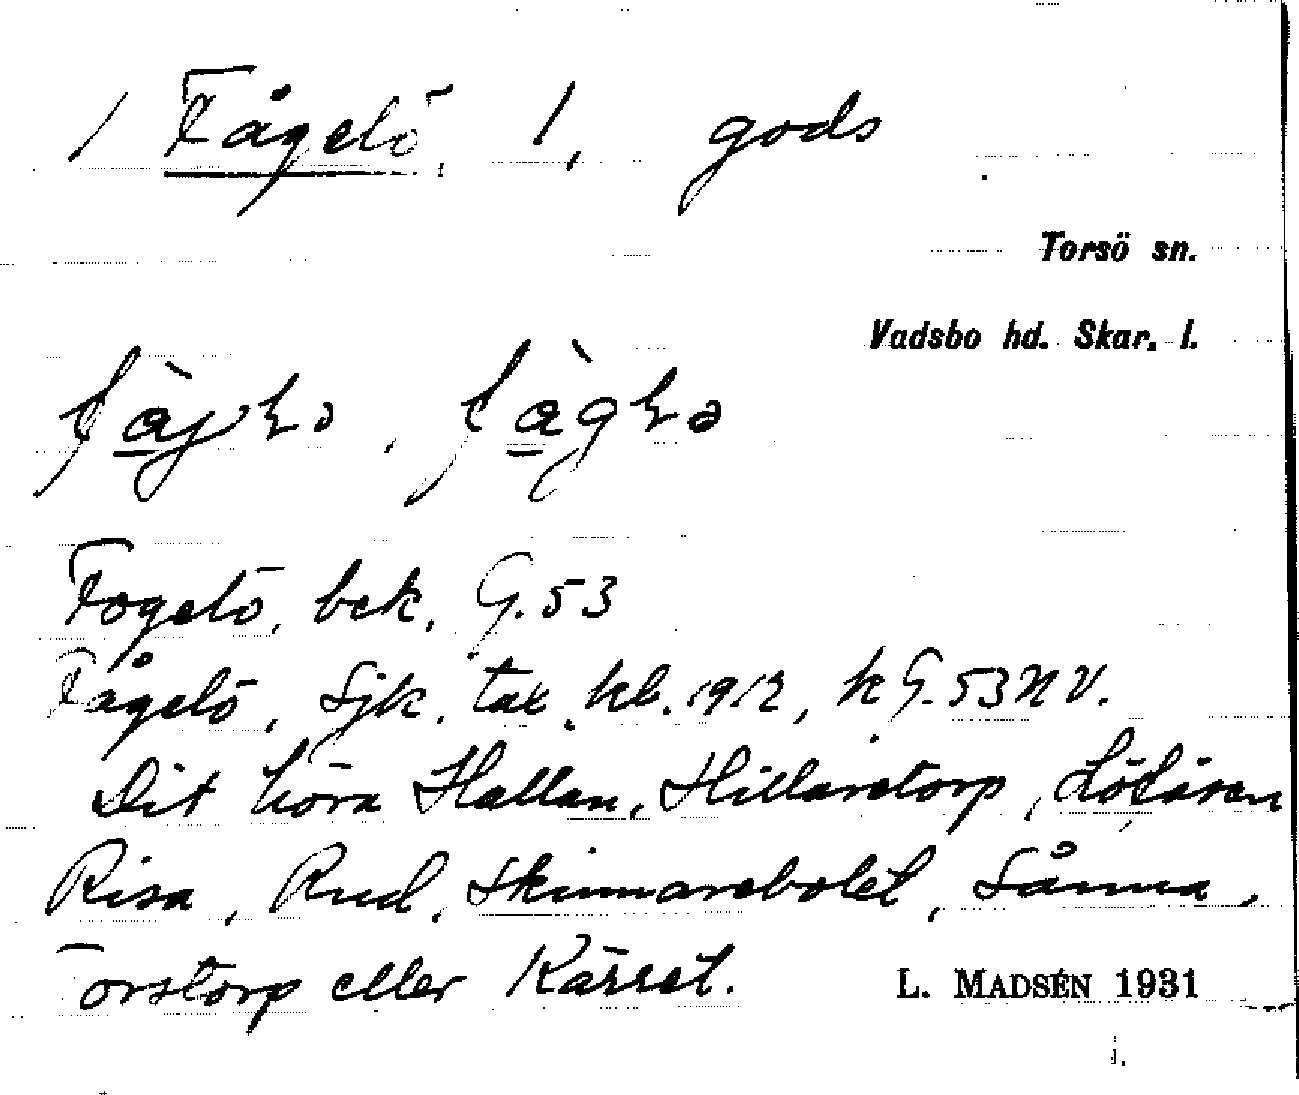 1 Fågelö, 1, gods
Torsö sn.
Vadsbo hd. Skar. l.
Fogelö, bek. G. 53
Fågelö, Sjk. tax. kb. 1912, k G. 53 NV.
Dit höra Hallan, Hillarstorp, Lötåsen
Risa, Rud, Skinnarebolet, Sånna,
Torstorp eller Kärret.
L. MADSÉN 1931